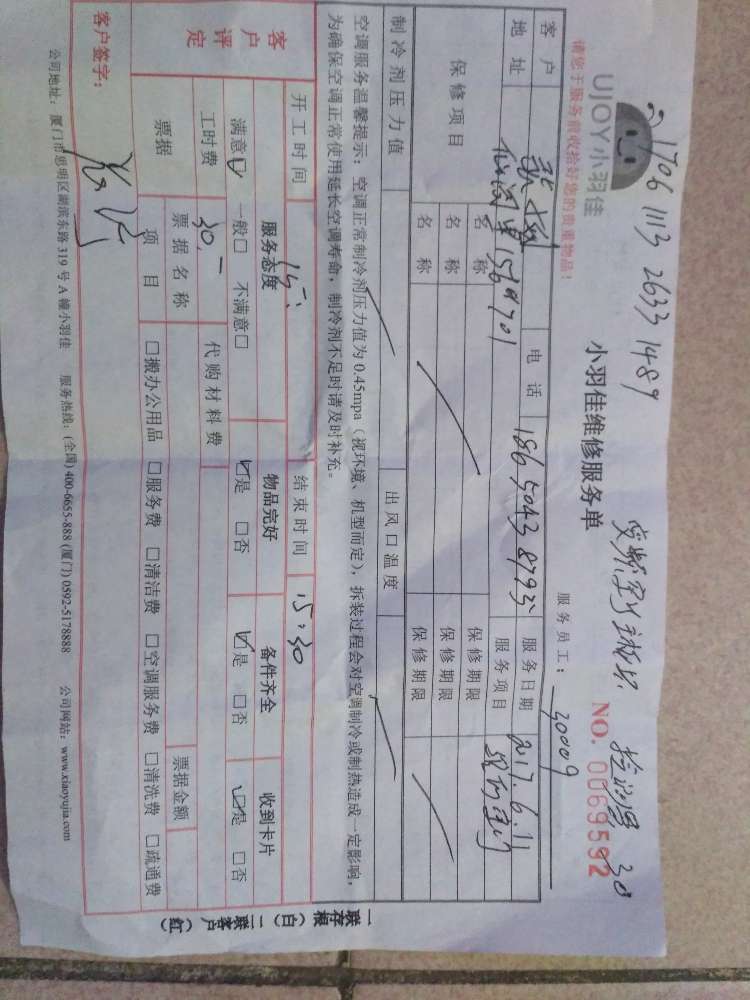 1706 1113 2633 1489
30
UJOY小羽佳
小羽佳维修服务单
NO. 0069592
请您于服务前收拾好您的贵重物品!
服务员工: 30009
客户 电话 服务日期 2017.6.11
地址 服务项目
保修项目 名称 保修期限
名称 保修期限
名称 保修期限
制冷剂压力值 出风口温度
空调服务温馨提示:空调正常制冷剂压力值为0.45mpa(视环境、机型而定),拆装过程会对空调制冷或制热造成一定影响,
为确保空调正常使用延长空调寿命,制冷剂不足时请及时补充。
开工时间 15: 结束时间 15:30
客户评定 服务态度 物品完好 备件齐全 收到卡片
满意☑ 一般□ 不满意□ ☑是 □否 ☑是 □否 ☑是 □否
工时费 30,- 代购材料费
票据 票据名称 票据金额
项目 □搬办公用品 □服务费 □清洁费 □空调服务费 □清洗费 □疏通费
客户签字:
公司地址:厦门市思明区湖滨东路319号A幢小羽佳 服务热线:(全国)400-6655-888 (厦门)0592-5178888 公司网站:www.xiaoyujia.com
一联存根(白)二联客户(红)